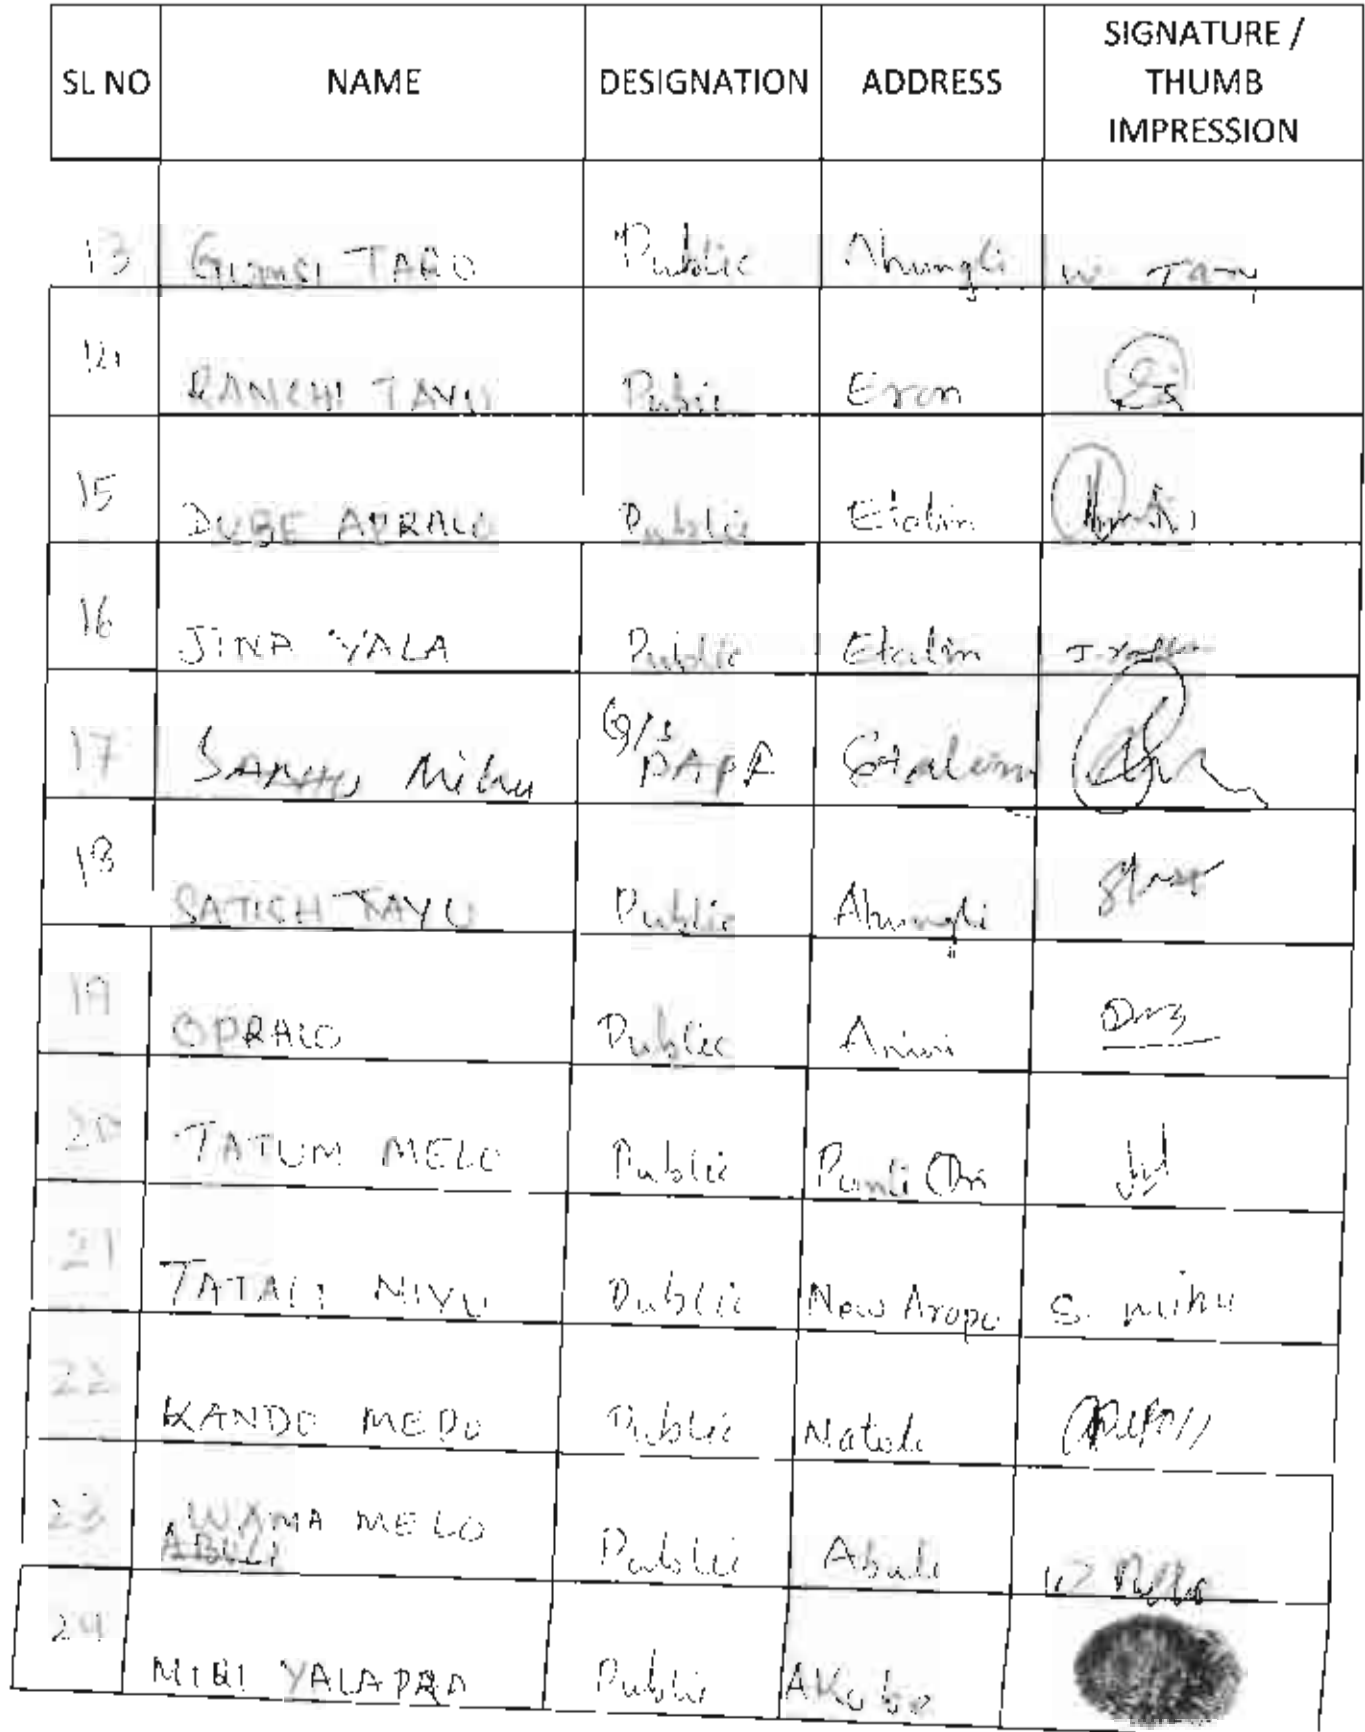 SL NO NAME DESIGNATION ADDRESS SIGNATURE / THUMB IMPRESSION
13 TARO Public Ahungli
14 RANCHI TAYU Pubic Eron
15 DUBE APRALO Public Etabin
16 JINA YALA Public Etalin J. Yala
17 Mihu G/S PAPA Etalin
18 SATICH TAYU Public Ahungli
19 OPRALO Public Anini
20 TATUM MELO Public
21 TATALI MIYU Public New Aropo S. mihu
22 KANDO MEDO Public
23 WAMA MELO Public Abuli
ABULI
24 MIRI YALAPRA Public